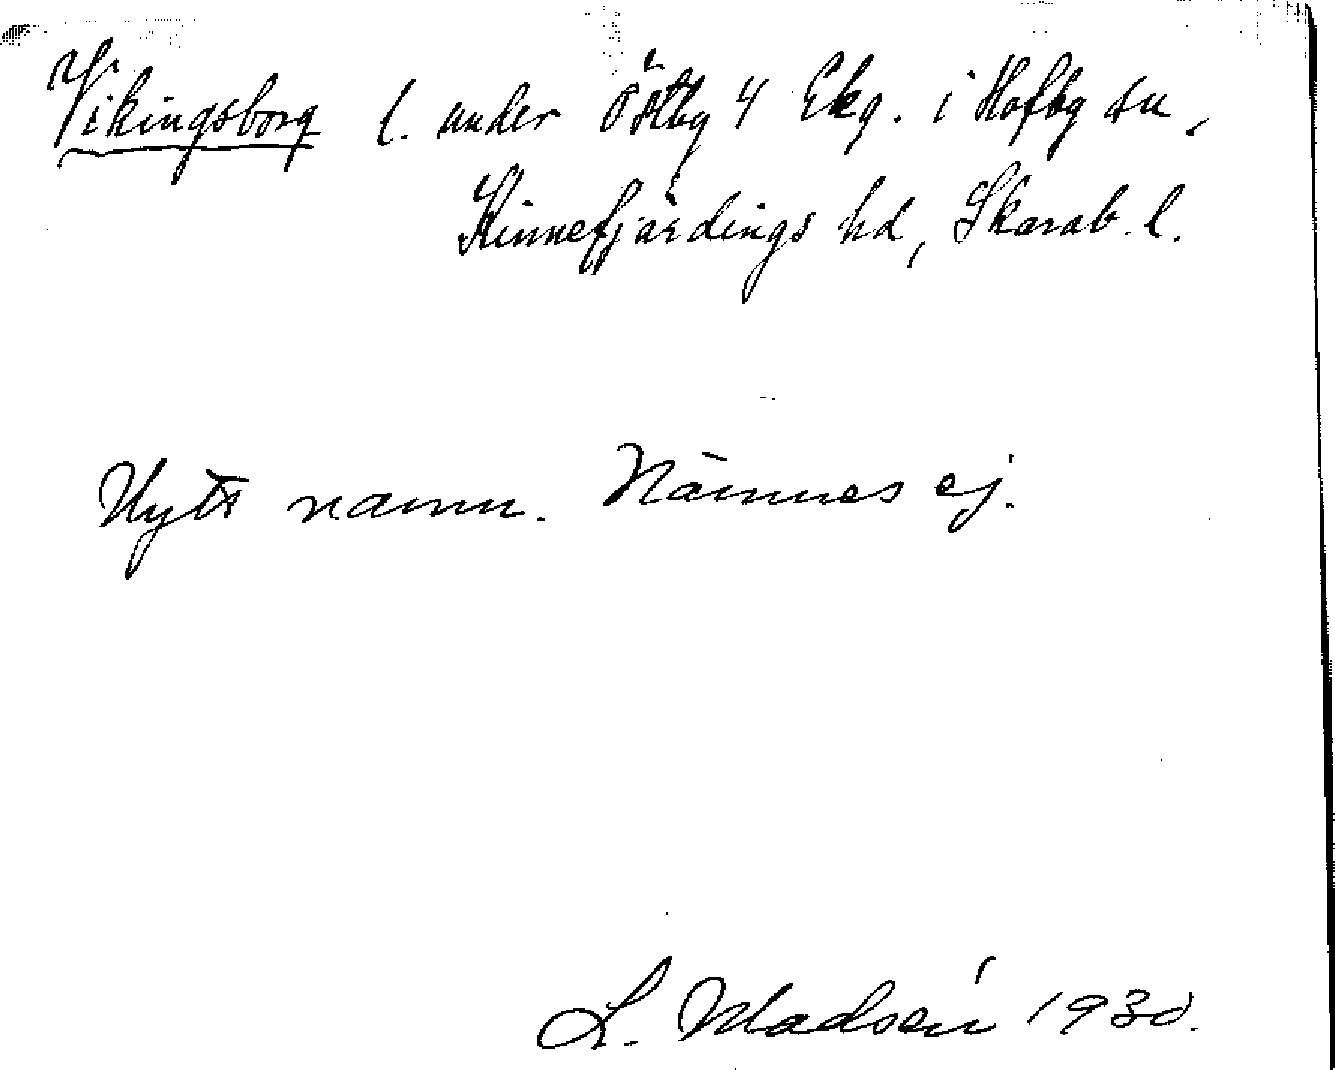 Vikingsborg l. under Östby 4 Ekg. i Hofby sn,
Kinnefjärdings hd, Skarab. l.
Nytt namn. Nämnes ej.
L. Madsén 1930.